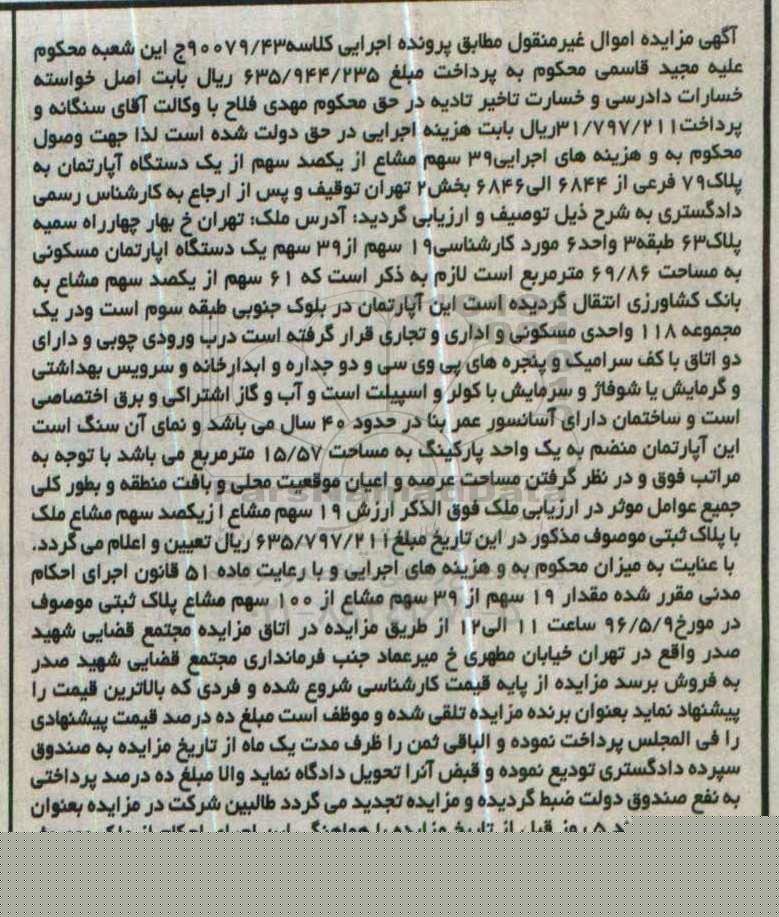 آگهی مزایده اموال غیرمنقول مطابق پرونده اجرایی کلاسه۹۰۰۷۹/۴۳ج این شعبه محکوم
علیه مجید قاسمی محکوم به پرداخت مبلغ ۶۳۵/۹۴۴/۲۳۵ ریال بابت اصل خواسته
خسارات دادرسی و خسارت تاخیر تادیه در حق محکوم مهدی فلاح با وکالت آقای سنگانه و
پرداخت۳۱/۷۹۷/۲۱۱ریال بابت هزینه اجرایی در حق دولت شده است لذا جهت وصول
محکوم به و هزینه های اجرایی۳۹ سهم مشاع از یکصد سهم از یک دستگاه آپارتمان به
پلاک۷۹ فرعی از ۶۸۴۴ الی۶۸۴۶ بخش۲ تهران توقیف و پس از ارجاع به کارشناس رسمی
دادگستری به شرح ذیل توصیف و ارزیابی گردید: آدرس ملک: تهران خ بهار چهارراه سمیه
پلاک۶۳ طبقه۳ واحد۶ مورد کارشناسی۱۹ سهم از۳۹ سهم یک دستگاه اپارتمان مسکونی
به مساحت ۶۹/۸۶ مترمربع است لازم به ذکر است که ۶۱ سهم از یکصد سهم مشاع به
بانک کشاورزی انتقال گردیده است این آپارتمان در بلوک جنوبی طبقه سوم است ودر یک
مجموعه ۱۱۸ واحدی مسکونی و اداری و تجاری قرار گرفته است درب ورودی چوبی و دارای
دو اتاق با کف سرامیک و پنجره های پی وی سی و دو جداره و ابدارخانه و سرویس بهداشتی
و گرمایش یا شوفاژ و سرمایش با کولر و اسپیلت است و آب و گاز اشتراکی و برق اختصاصی
است و ساختمان دارای آسانسور عمر بنا در حدود ۴۰ سال می باشد و نمای آن سنگ است
این آپارتمان منضم به یک واحد پارکینگ به مساحت ۱۵/۵۷ مترمربع می باشد با توجه به
مراتب فوق و در نظر گرفتن مساحت عرصه و اعیان موقعیت محلی و بافت منطقه و بطور کلی
جمیع عوامل موثر در ارزیابی ملک فوق الذکر ارزش ۱۹ سهم مشاع ا زیکصد سهم مشاع ملک
با پلاک ثبتی موصوف مذکور در این تاریخ مبلغ۶۳۵/۷۹۷/۲۱۱ ریال تعیین و اعلام می گردد.
با عنایت به میزان محکوم به و هزینه های اجرایی و با رعایت ماده ۵۱ قانون اجرای احکام
مدنی مقرر شده مقدار ۱۹ سهم از ۳۹ سهم مشاع از ۱۰۰ سهم مشاع پلاک ثبتی موصوف
در مورخ۹۶/۵/۹ ساعت ۱۱ الی۱۲ از طریق مزایده در اتاق مزایده مجتمع قضایی شهید
صدر واقع در تهران خیابان مطهری خ میرعماد جنب فرمانداری مجتمع قضایی شهید صدر
به فروش برسد مزایده از پایه قیمت کارشناسی شروع شده و فردی که بالاترین قیمت را
پیشنهاد نماید بعنوان برنده مزایده تلقی شده و موظف است مبلغ ده درصد قیمت پیشنهادی
را فی المجلس پرداخت نموده و الباقی ثمن را ظرف مدت یک ماه از تاریخ مزایده به صندوق
سپرده دادگستری تودیع نموده و قبض آنرا تحویل دادگاه نماید والا مبلغ ده درصد پرداختی
به نفع صندوق دولت ضبط گردیده و مزایده تجدید می گردد طالبین شرکت در مزایده بعنوان
۵ روز قبل از تاریخ مزایده با هماهنگی این اجرای احکام از ملک
ParsNamadData